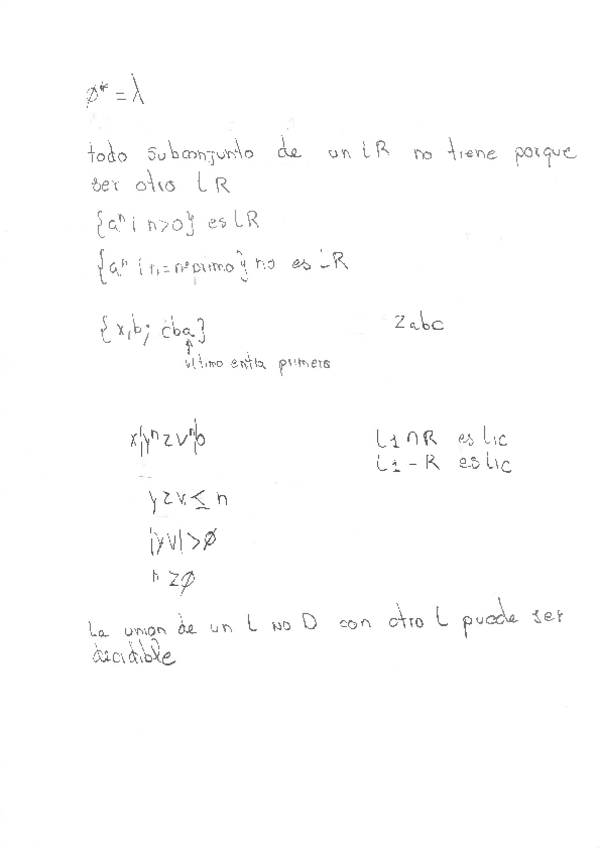 ø* = λ
todo subconjunto de un LR no tiene porque
ser otro LR
{aⁿ ¡ n>0} es LR
{aⁿ ¡ n = nº primo} no es LR
{x,b; cba} zabc
↑
ultimo entra primero
x|yⁿzvⁿ|b L1 ∩ R es lic
L1 - R es lic
yzv ≤ n
|yv| > ø
n ≥ ø
La union de un L no D con otro L puede ser
decidible